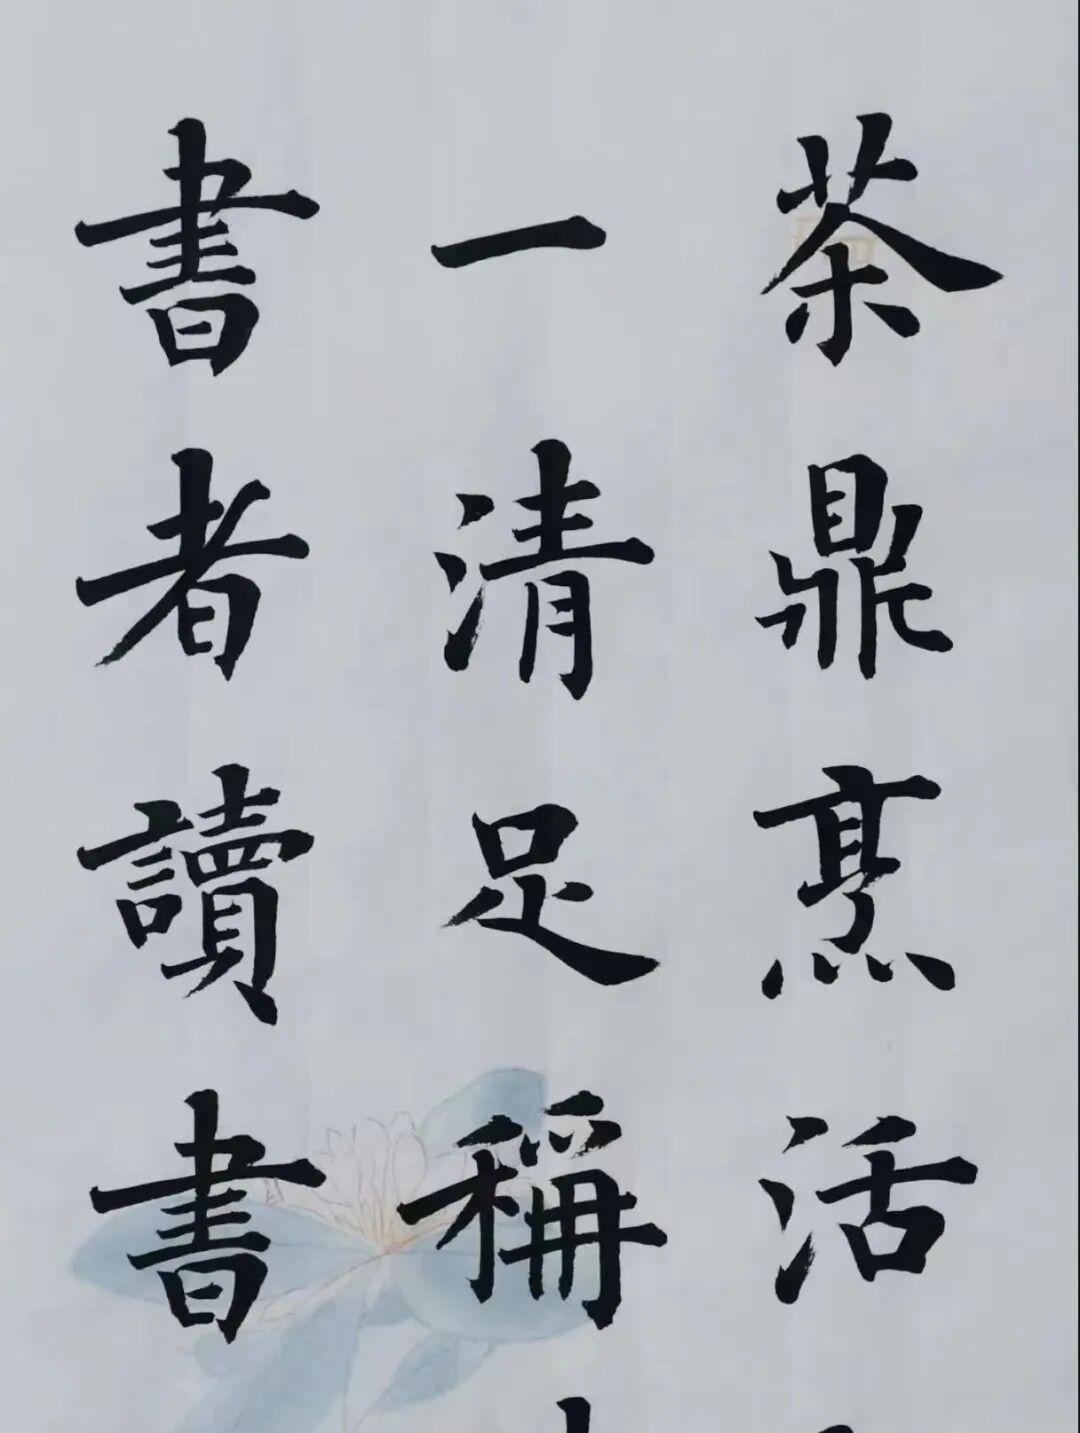 茶鼎烹活
一清足稱
書者讀書